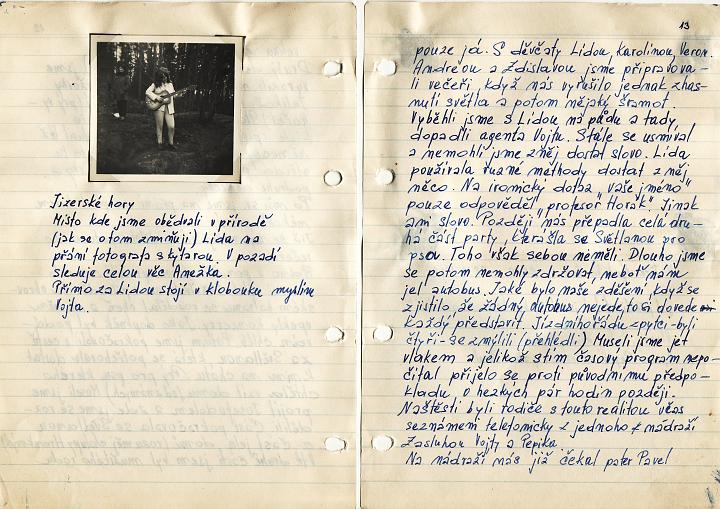 Jizerské hory
Místo kde jsme obědvali v přírodě
(jak se o tom zmiňuji) Lída na
přání fotografa s kytarou. V pozadí
sleduje celou věc Anežka.
Přímo za Lidou stojí v klobouku myslím
Vojta.
13
pouze já. S děvčaty Lídou, Karolínou, Veron.
Andreou a Zdislavou jsme připravova-
li večeři, když nás vyrušilo jednak zhas-
nutí světla a potom nějaký šramot.
Vyběhli jsme s Lídou na půdu a tady,
dopadli agenta Vojtu. Stále se usmíval
a nemohli jsme z něj dostat slovo. Lída
používala různé methody dostat z něj
něco. Na ironický dotaz "vaše jméno"
pouze odpověděl "profesor Horák" Jinak
ani slovo. Později nás přepadla celá dru-
há část party, která šla se Světlanou pro
psov. Toho však sebou neměli. Dlouho jsme
se potom nemohly zdržovat, neboť nám
jel autobus. Jaké bylo naše zděšení, když se
zjistilo, že žádný autobus nejede, to si dovede
každý představit. Jízdního řádu zpytci - byli
čtyři - se zmýlili (přehlédli) Museli jsme jet
vlakem a jelikož s tím časový program nepo-
čítal přijelo se proti původnímu předpo-
kladu o hezkých pár hodin později.
Naštěstí byli rodiče s touto realitou včas
seznámeni telefonicky z jednoho z nádraží
Zásluhou Vojty a Pepíka.
Na nádraží nás již čekal pater Pavel